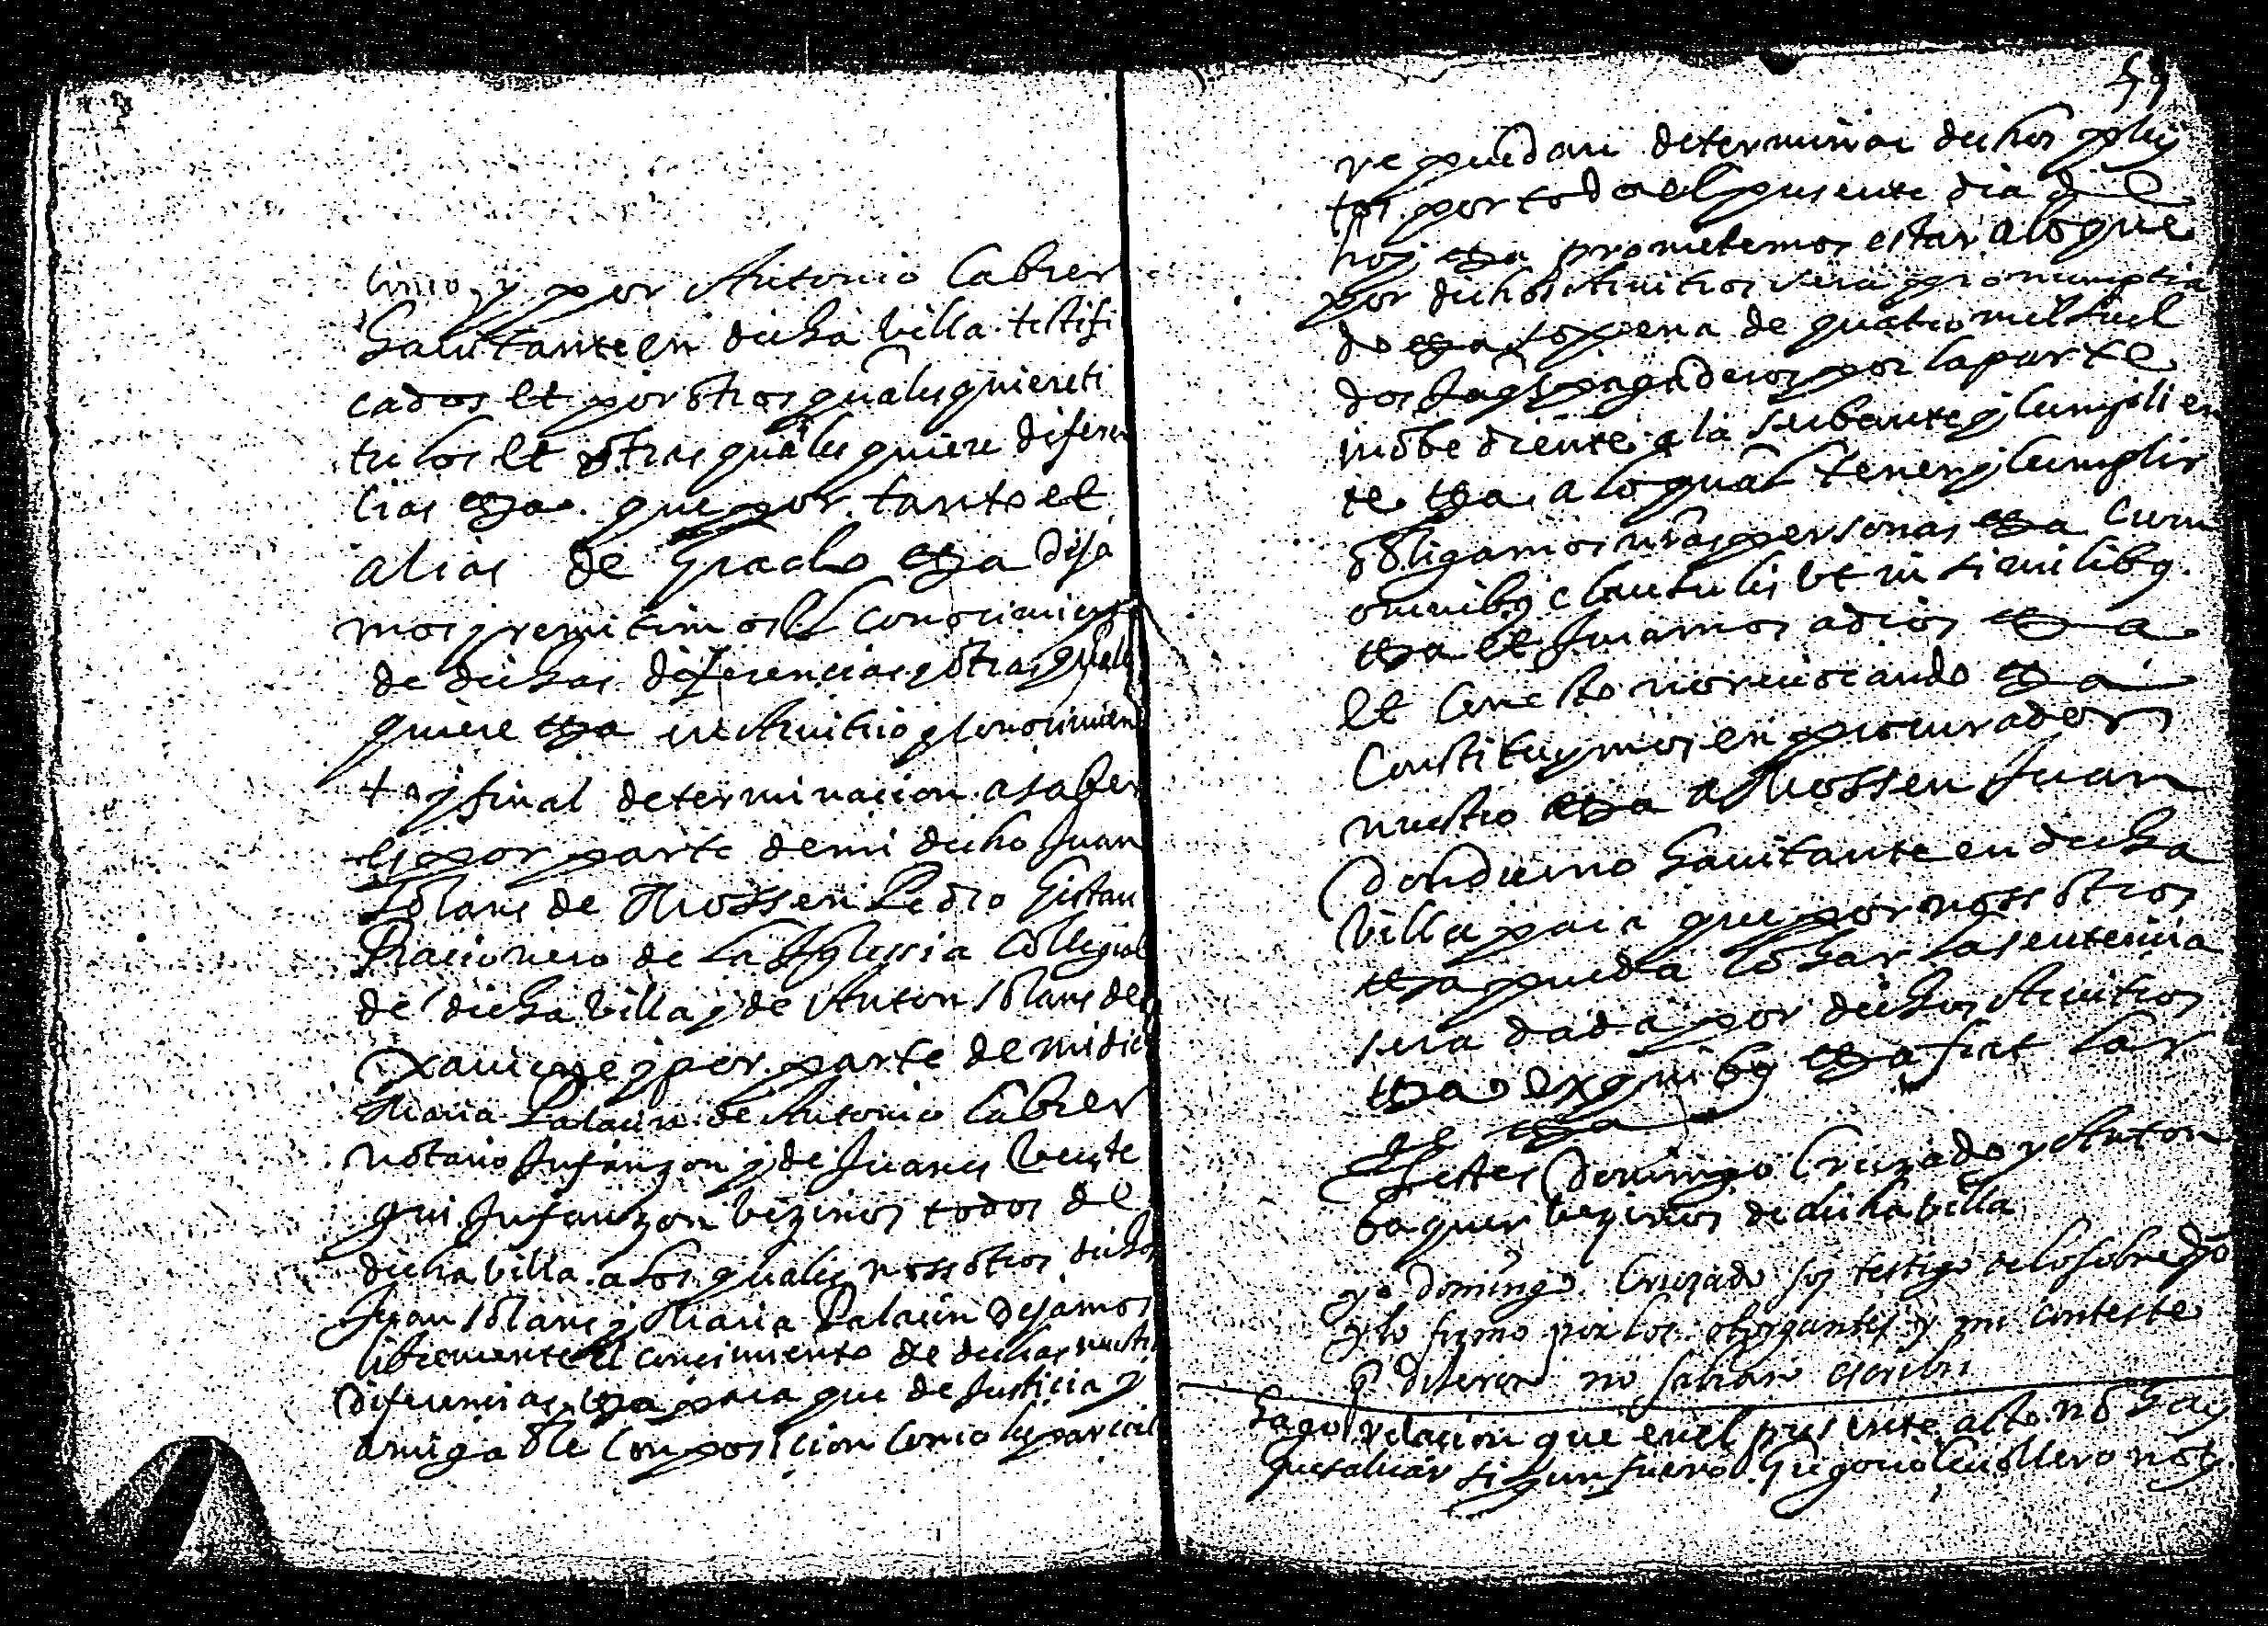 cinio, y por Antonio Cabrer
hauitante en dicha billa testifi
cados et por otros quales quiere ti
tulos et otras quales quiere diferen
cias etza. que por tanto et
alias de grado etza deja
mos y remitimos el conocimiento
de dichas diferencias y otras quales
quiere etza en Arvitrio y conocimien
to y final determinacion a saber
es por parte de mi dicho Juan
Solans de Mossen Pedro Gistau
Racionero de la Yglesia Collegial
de dicha billa y de Anton Solans de
Xavierre y por parte de mi dicha
Maria Palacin de Antonio Cabrer
notario Infanzon y de Juan
Infanzon bezinos todos de
dicha billa. a los quales nossotros dichos
Juan Solans y Maria Palacin dejamos
libremente el conocimiento de dichas nuestras
diferencias etza para que de Justicia y
amigable composicion como les parecie
59
re puedan determinar dichos pley
tos por todo el presente dia de
hoy etza prometemos estar a lo que
por dichos Arvitros sera pronumptia
do etza so pena de quatro mil suel
dos Jaqs pagaderos por la parte
inobediente a la obediente y cumplien
te etza. a lo qual tener y cumplir
obligamos nras personas etza cum
omnibus clausulis ut in similibus.
etza et Juramos a dios etza
et con esto no reuocando etza
Constituymos en procurador
nuestro etza a Mossen Juan
hauitante en dicha
billa para que por nossotros
etza pueda lohar la sentencia
sera dada por dichos Arvitros
etza ex quibus etza fiat lar
ge etza
Testes Domingo Cruzado y Anton
baquer bezinos de dicha billa
yo domingo Cruzado soy testigo de lo sobredho
y lo firmo por los otorgantes y mi conteste
q dixeron no sabian escribir
Hago relacion que en el presente acto no hay
que saluar sigun fuero. Gregorio noty.